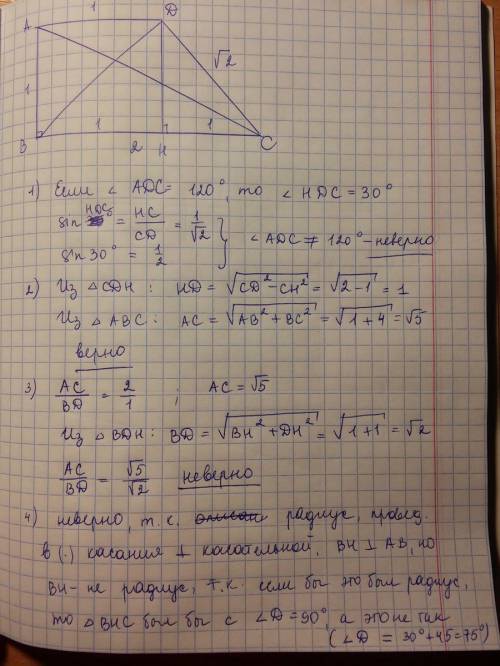 1
A D
√2
1
1 1
B 2 H C
1) Если ∠ ADC = 120°, то ∠ HDC = 30°
sin HDC = HC/CD = 1/√2
∠ ADC ≠ 120° – неверно
sin 30° = 1/2
2) Из △CDH : HD = √(CD² − CH²) = √(2−1) = 1
Из △ ABC : AC = √(AB² + BC²) = √(1+4) = √5
верно
3) AC/BD = 2/1 ; AC = √5
Из △ BDH : BD = √(BH² + DH²) = √(1+1) = √2
AC/BD = √5/√2 неверно
4) неверно, т.к. радиус, провед.
в (.) касания ⊥ касательной, BH ⊥ AB, но
BH – не радиус, т.к. если бы это был радиус,
то △ BHC был бы с ∠D = 90°, а это не так
(∠D = 30° + 45 = 75°)